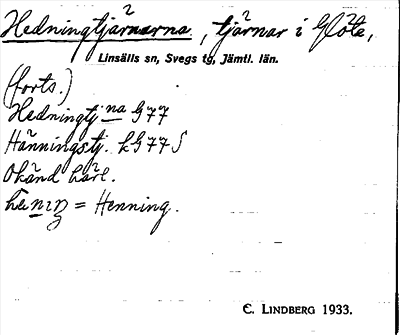 Hedningtjärnarna, tjärnar i Glöte,
Linsälls sn, Svegs tg, Jämtl. län.
(forts.)
Hedningtj na G 77
Hänningstj. kG 77 S
Okänd härl.
= Henning.
C. LINDBERG 1933.